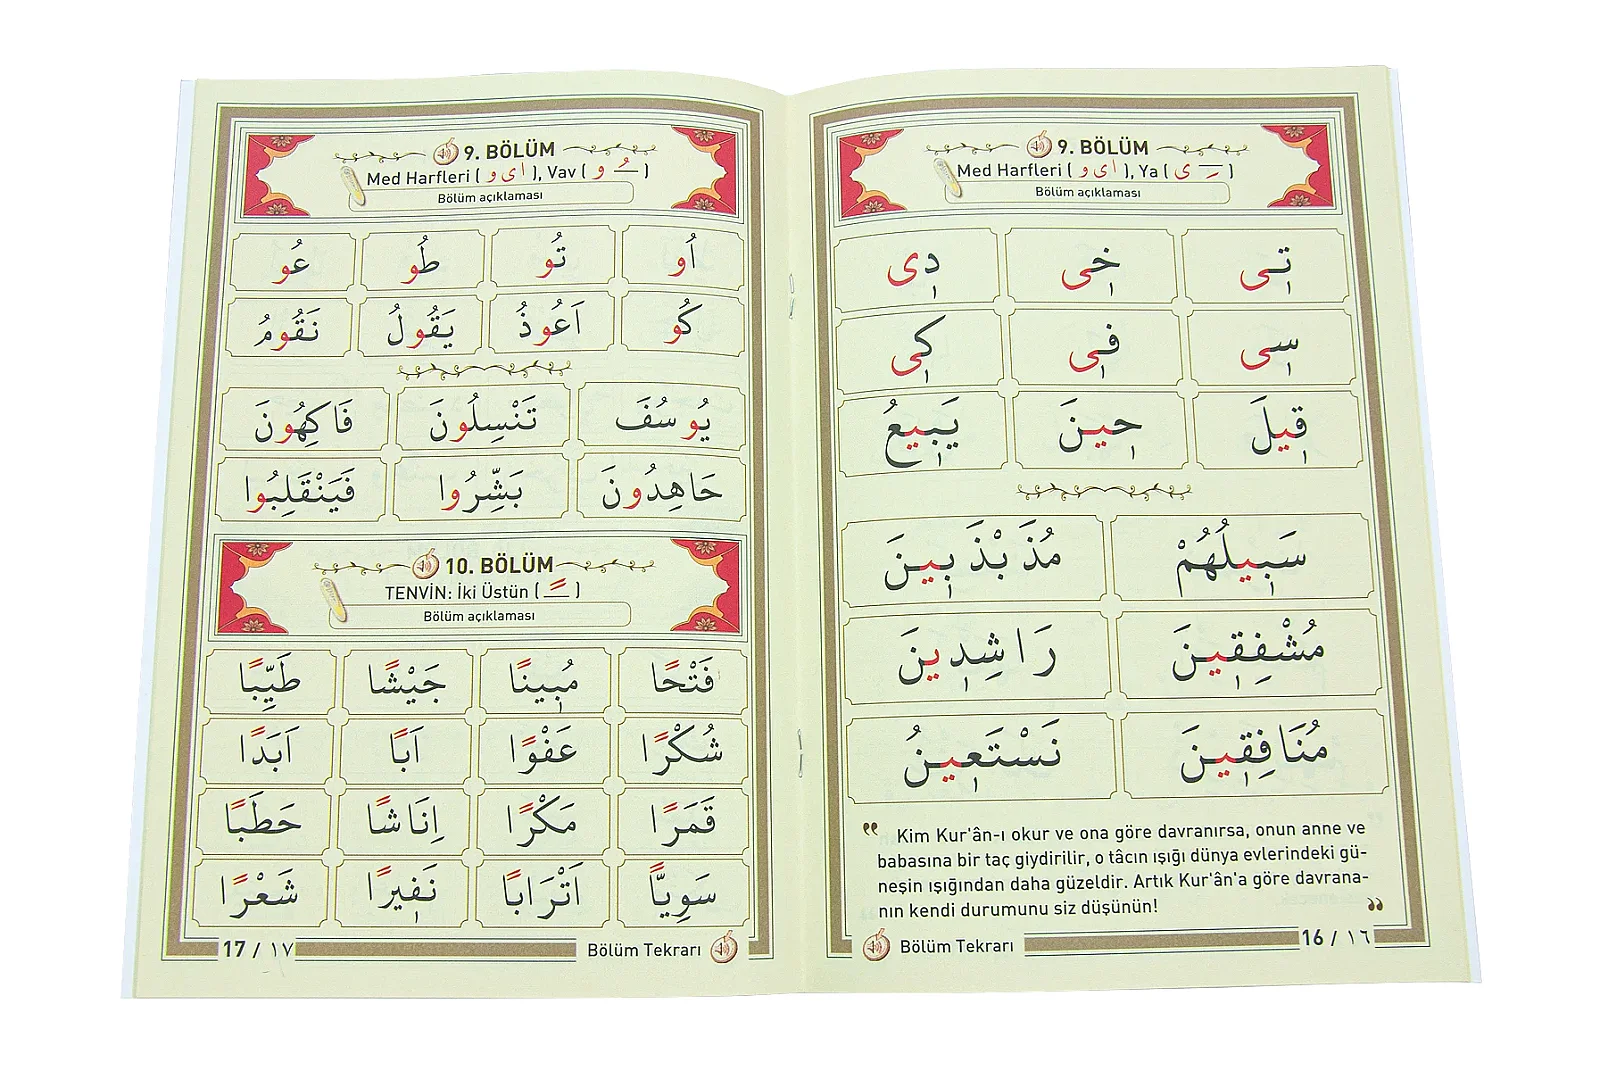 9. BÖLÜM
Med Harfleri ( ا ی و ), Ya ( ـِ ی )
Bölüm açıklaması
تٖى خٖى دٖى
سٖى فٖى كٖى
قٖيلَ حٖينَ يَبٖيعُ
سَبٖيلَهُمْ مُذَبْذَبٖينَ
مُشْفِقٖينَ رَاشِدٖينَ
مُنَافِقٖينَ نَسْتَعٖينُ
“ Kim Kur'ân-ı okur ve ona göre davranırsa, onun anne ve
babasına bir taç giydirilir, o tâcın ışığı dünya evlerindeki gü-
neşin ışığından daha güzeldir. Artık Kur'ân'a göre davrana-
nın kendi durumunu siz düşünün! ”
Bölüm Tekrarı 16 / ١٦
9. BÖLÜM
Med Harfleri ( ا ی و ), Vav ( و ـُ )
Bölüm açıklaması
اُو تُو طُو عُو
كُو اَعُوذُ يَقُولُ نَقُومُ
يُوسُفَ تَنْسِلُونَ فَاكِهُونَ
حَاهِدُونَ بَشِّرُوا فَيَنْقَلِبُوا
10. BÖLÜM
TENVİN: İki Üstün ( ـً )
Bölüm açıklaması
فَتْحًا مُبٖينًا جَيْشًا طَيِّبًا
شُكْرًا عَفْوًا اَبًا اَبَدًا
قَمَرًا مَكْرًا اِنَاشًا حَطَبًا
سَوِيًّا اَتْرَابًا نَفٖيرًا شَعْرًا
17 / ١٧ Bölüm Tekrarı